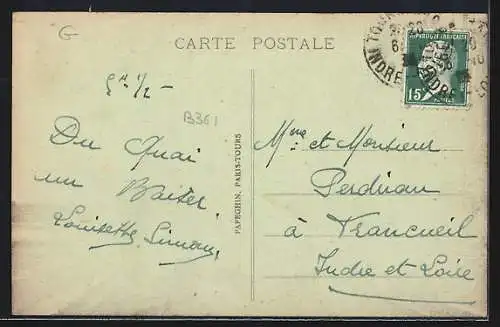 G
CARTE POSTALE
B361
Du Quai
un Baiser
Louisette Simon
PAPEGHIN, PARIS-TOURS
Mme et Monsieur
Perdriau
à Francueil
Indre et Loire
REPUBLIQUE FRANÇAISE
15
INDRE